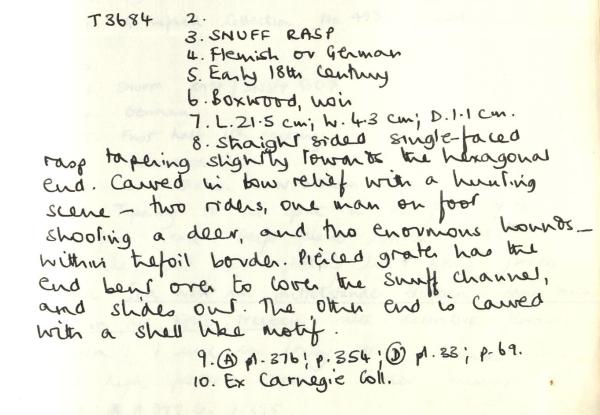 T3684 2.
3. SNUFF RASP
4. Flemish or German
5. Early 18th Century
6. Boxwood, iron
7. L.21.5 cm; W. 4.3 cm; D.1.1 cm.
8. Straight sided single-faced
rasp tapering slightly towards the hexagonal
end. Carved in low relief with a hunting
scene – two riders, one man on foot
shooting a deer, and two enormous hounds –
within trefoil border. Pierced grater has the
end bent over to cover the snuff channel,
and slides out. The other end is carved
with a shell like motif.
9. Ⓐ pl. 376; p. 354; Ⓓ pl. 33; p. 69.
10. Ex Carnegie Coll.